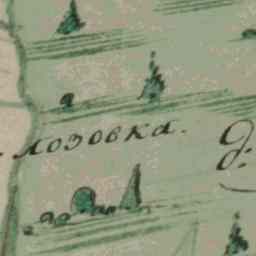 лозовка.
д: